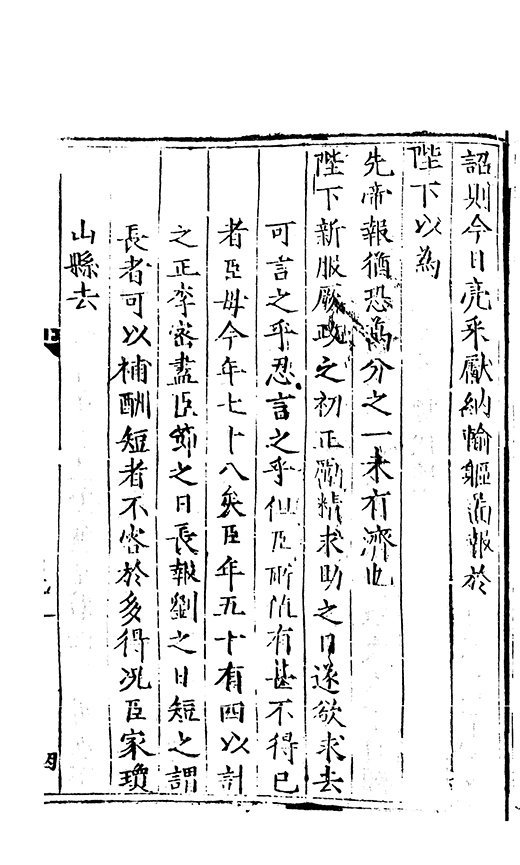 詔則今日亮采厭納輸軀啚報於
陛下以為
先帝報猶恐萬分之一未有濟也
陛下新服厥政之初正勵精求助之日遂欲求去
可言之乎忍言之乎但臣所值有甚不得已
者臣毋今年七十八矣臣年五十有四以計
之正李密盡臣節之日長報劉之日短之謂
長者可以補酬短者不容於多得况臣家瓊
山縣去